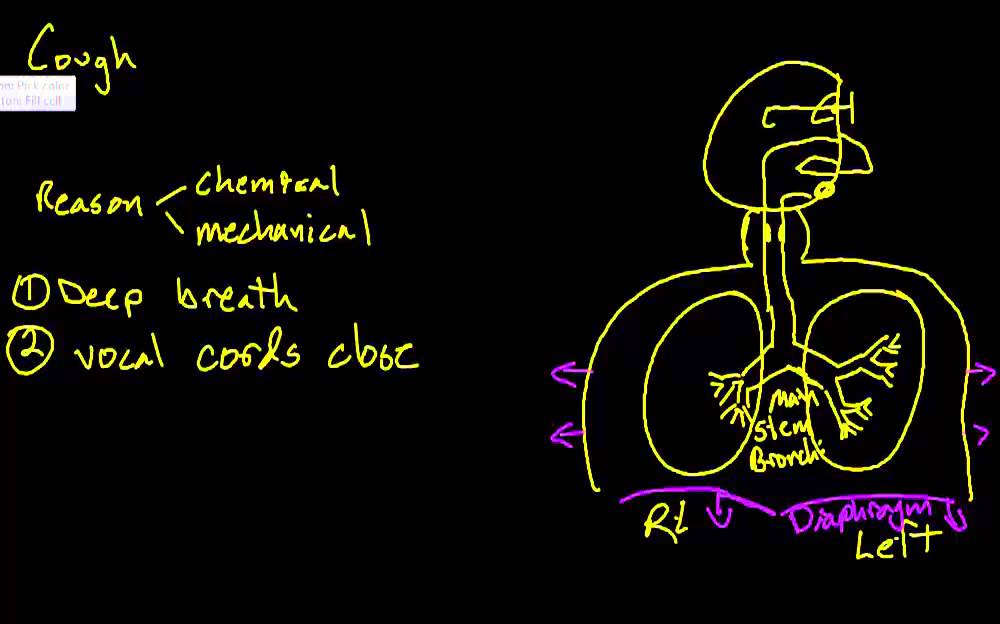 Cough
om: Pick color
tom: Fill cell
Reason
chemical
mechanical
① Deep breath
② vocal cords close
Main
Stem
Bronchi
Rt
Diaphragm
Left